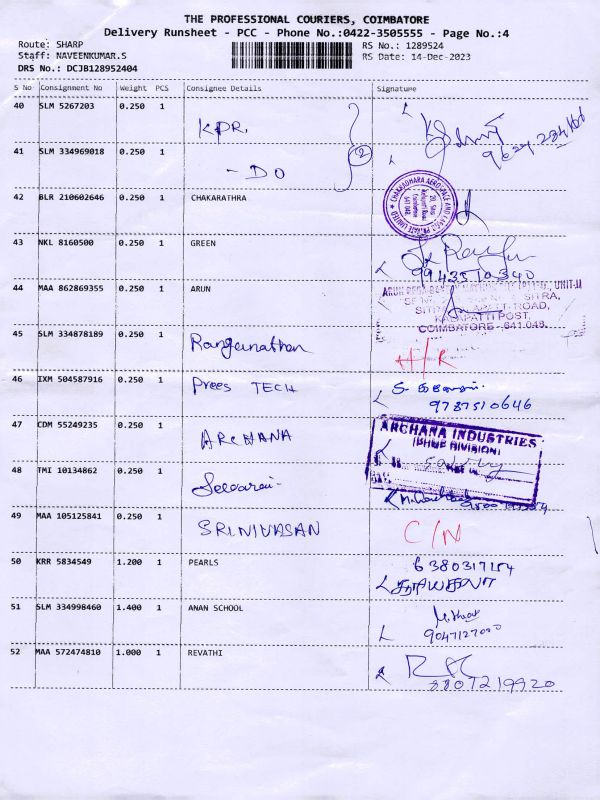 THE PROFESSIONAL COURIERS, COIMBATORE
Delivery Runsheet - PCC - Phone No.:0422-3505555 - Page No.:4
Route: SHARP RS No.: 1289524
Staff: NAVEENKUMAR.S RS Date: 14-Dec-2023
DRS No.: DCJB128952404
S No Consignment No Weight PCS Consignee Details Signature
40 SLM 5267203 0.250 1 KPR.
41 SLM 334969018 0.250 1 - DO 2
42 BLR 210602646 0.250 1 CHAKARATHRA
43 NKL 8160500 0.250 1 GREEN
9943510340
44 MAA 862869355 0.250 1 ARUN
UNIT-II
SITRA,
ROAD,
POST,
COIMBATORE - 641 048.
45 SLM 334878189 0.250 1 Ranganathan H/R
46 IXM 504587916 0.250 1 Prees TECH
9787510646
47 CDM 55249235 0.250 1 ARCHANA
ARCHANA INDUSTRIES
48 TMI 10134862 0.250 1
49 MAA 105125841 0.250 1 SRINIVASAN C/N
50 KRR 5834549 1.200 1 PEARLS
51 SLM 334998460 1.400 1 ANAN SCHOOL
52 MAA 572474810 1.000 1 REVATHI
8807219920